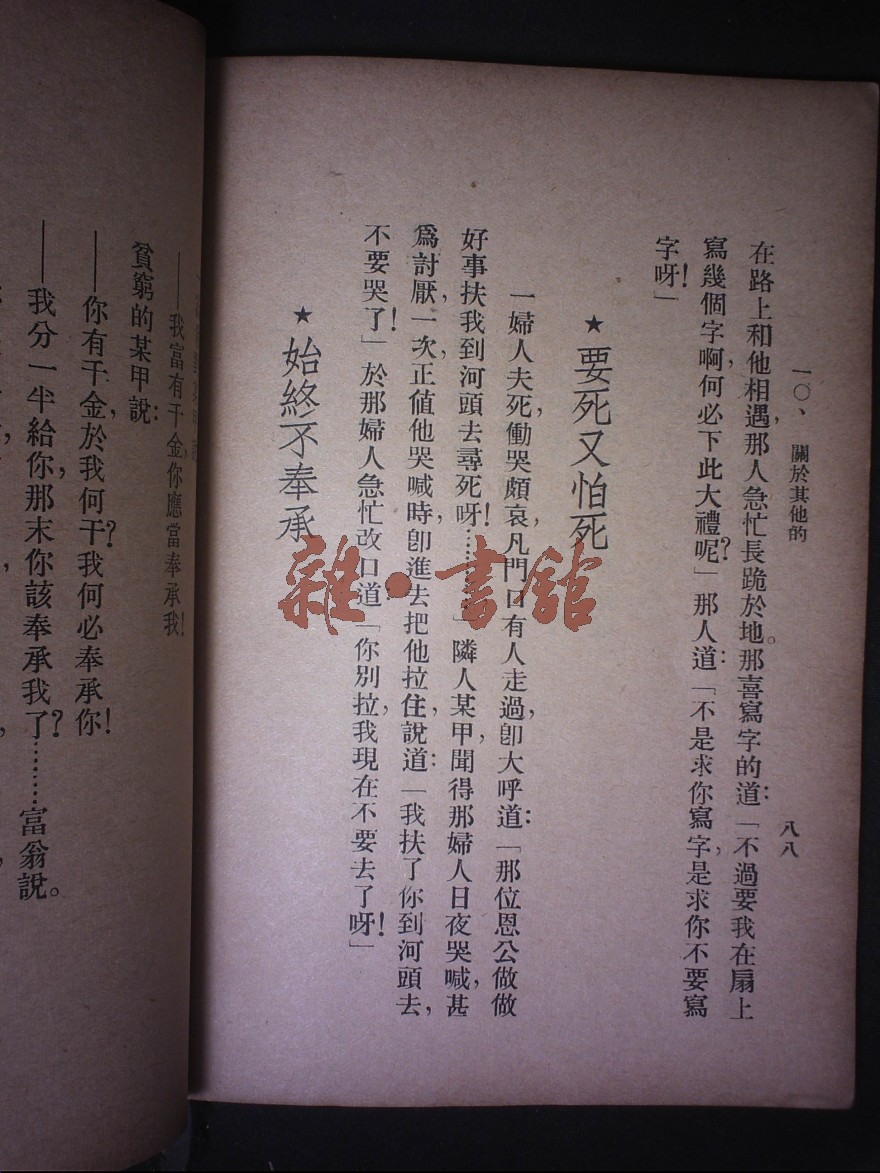 一〇、 關於其他的
八八
在路上和他相遇，那人急忙長跪於地。那喜寫字的道：「不過要我在扇上
寫幾個字啊，何必下此大禮呢？」那人道：「不是求你寫字，是求你不要寫
字呀！」
★ 要死又怕死
一婦人夫死，慟哭頗哀，凡門口有人走過，卽大呼道：「那位恩公做做
好事扶我到河頭去尋死呀！………」隣人某甲，聞得那婦人日夜哭喊，甚
爲討厭，一次，正值他哭喊時，卽進去把他拉住，說道：「我扶了你到河頭去，
不要哭了！」於那婦人急忙改口道「你別拉，我現在不要去了呀！」
★ 始終不奉承
——我富有千金，你應當奉承我！
貧窮的某甲說：
——你有千金，於我何干？我何必奉承你！
——我分一半給你，那末你該奉承我了？………富翁說。
雜·書館